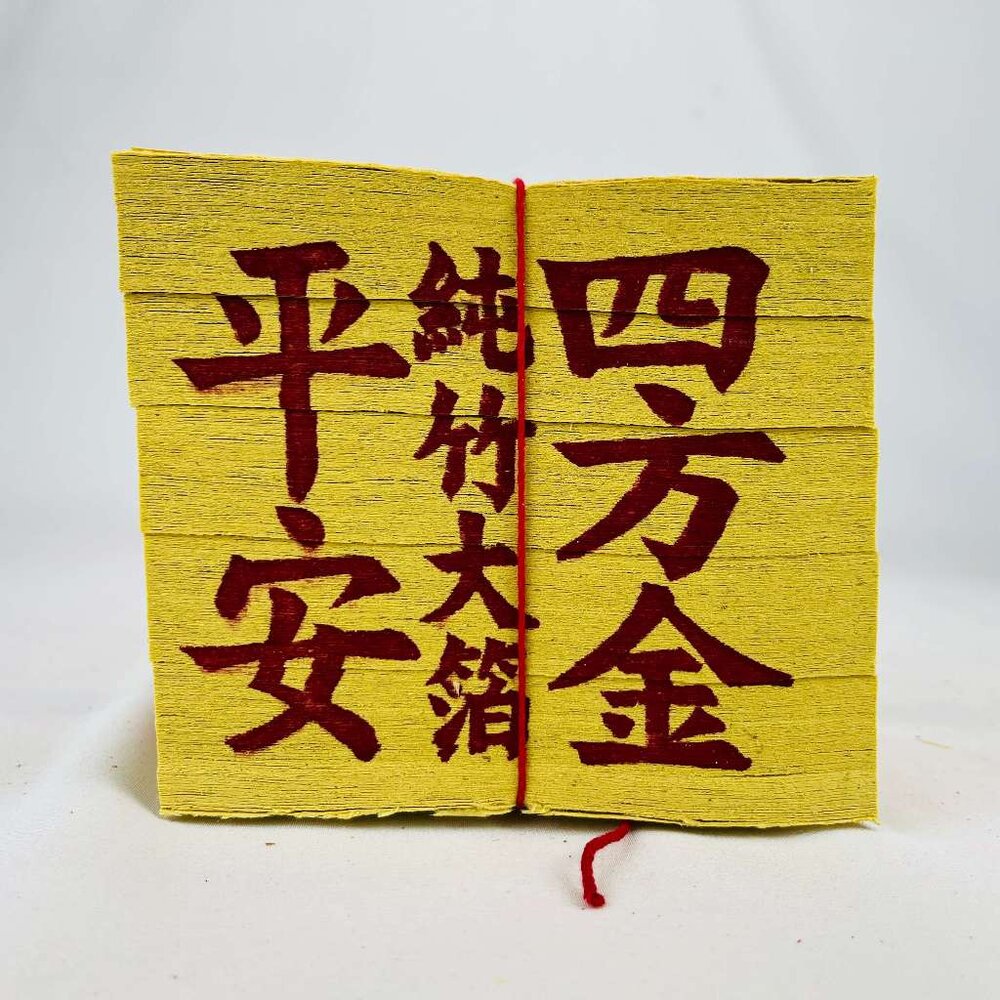 四方金
純竹大箔
平安